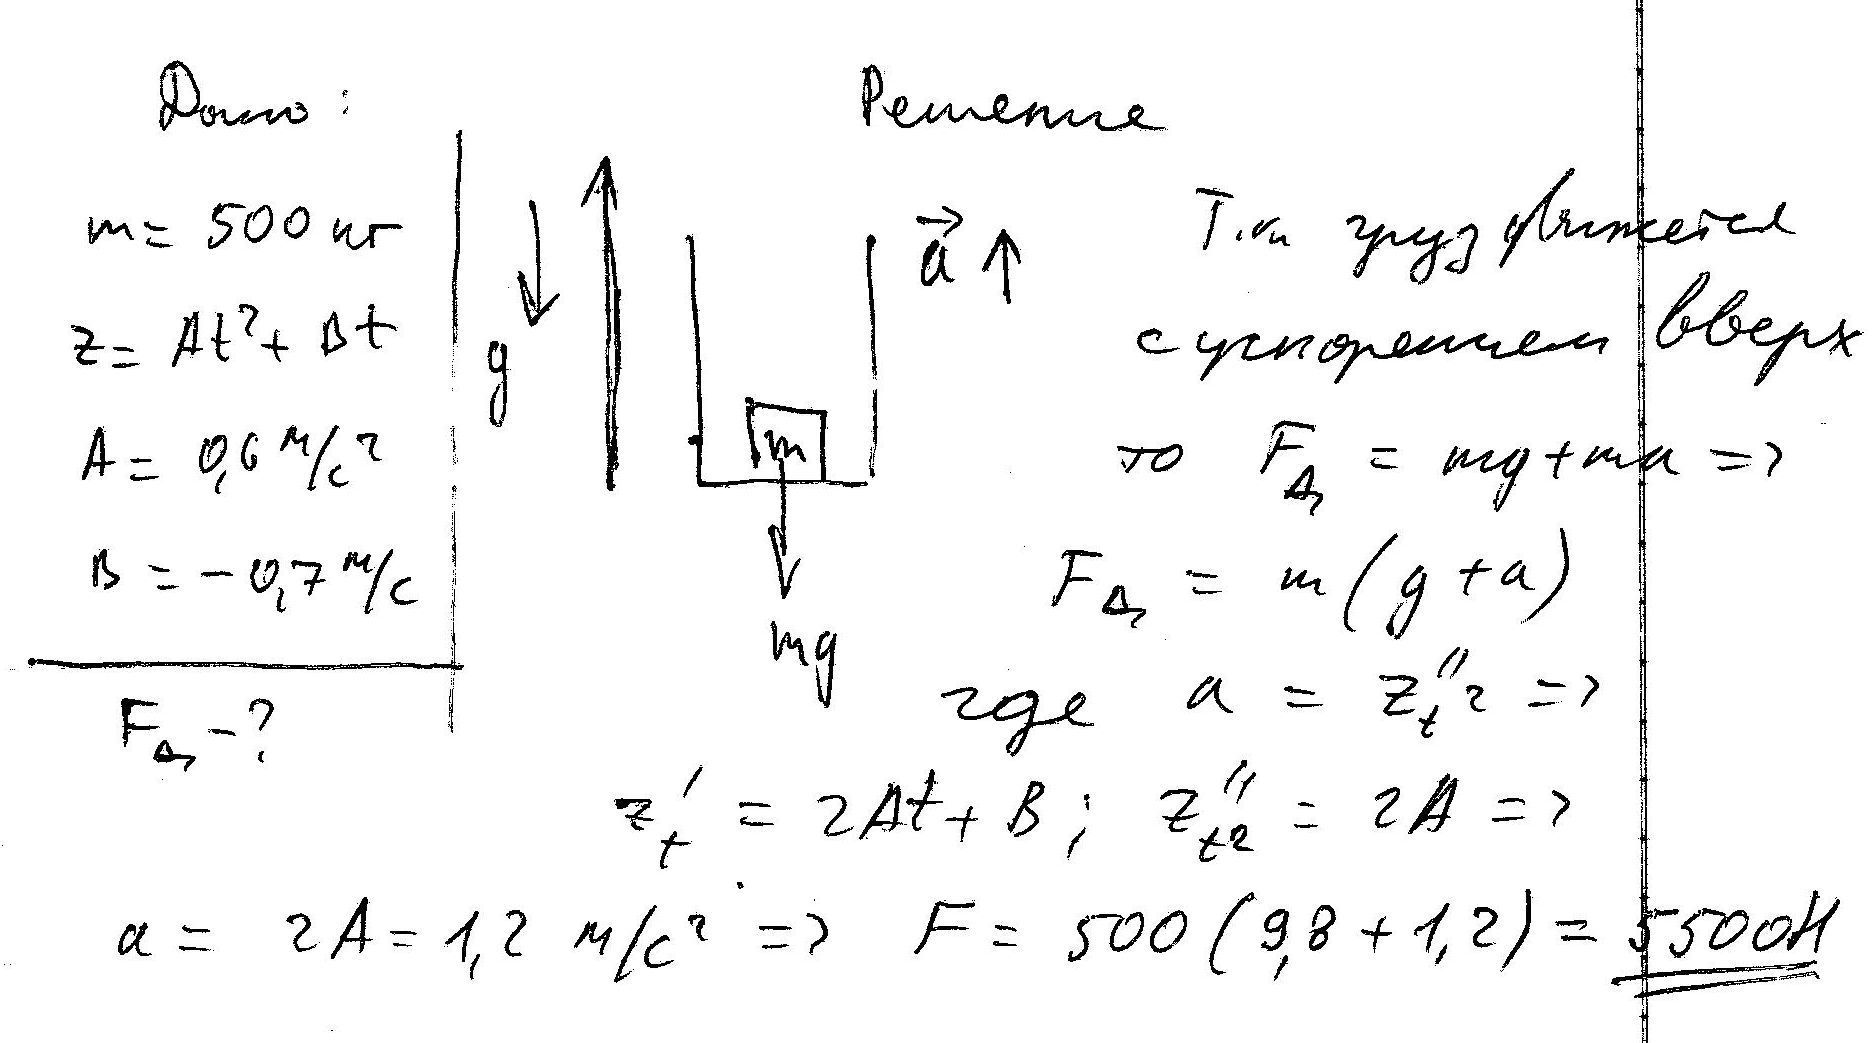 Дано:
m = 500 кг
z = At² + Bt
A = 0,6 м/с²
B = -0,7 м/с
Fд - ?
Решение
g
m
mg
a
Т.к. груз движется
с ускорением вверх
то Fд = mg + ma =>
Fд = m(g + a)
где a = z''t² =>
z't = 2At + B; z''t² = 2A =>
a = 2A = 1,2 м/с² => F = 500(9,8 + 1,2) = 5500Н